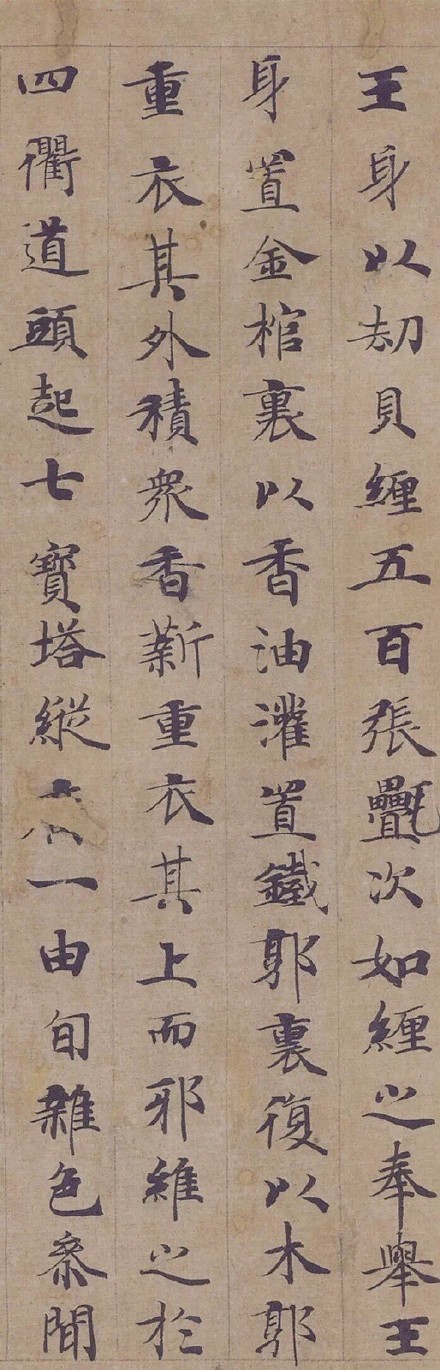 王身以劫貝纏五百張疊次如纏之奉舉王
身置金棺裏以香油灌置鐵郭裏復以木郭
重衣其外積衆香薪重衣其上而耶維之於
四衢道頭起七寶塔縱一由旬雜色參間